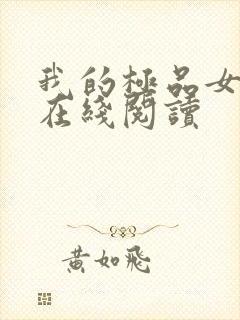 我的極品女
在綫閱讀
黃如飛